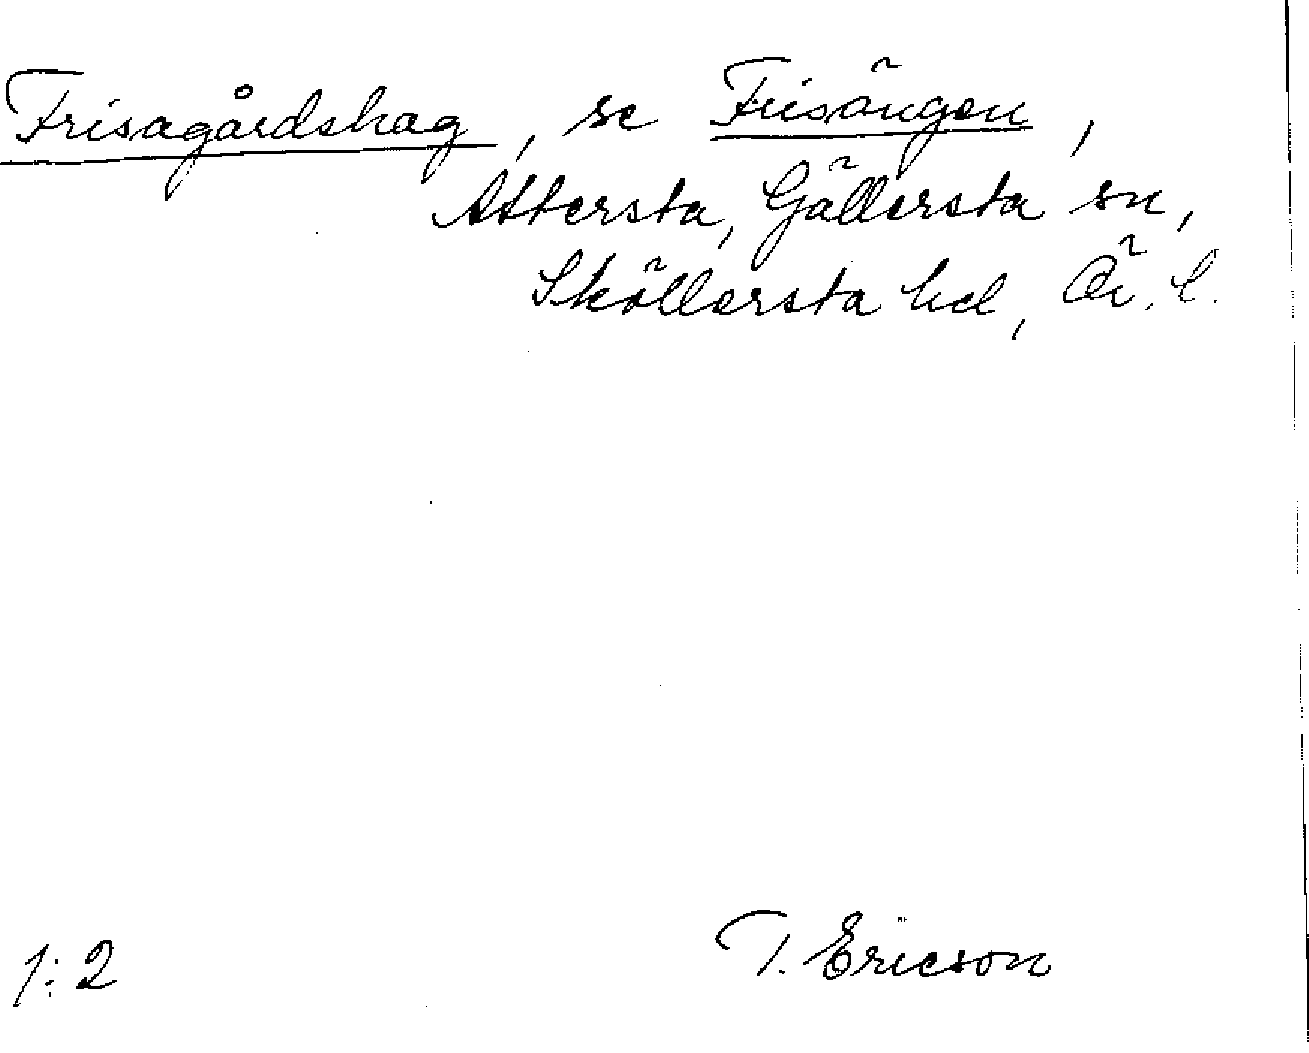 Frisagårdshag, se Frisängen,
Attersta, Gällersta sn,
Sköllersta hd, Ör. l.
1:2
T. Ericson